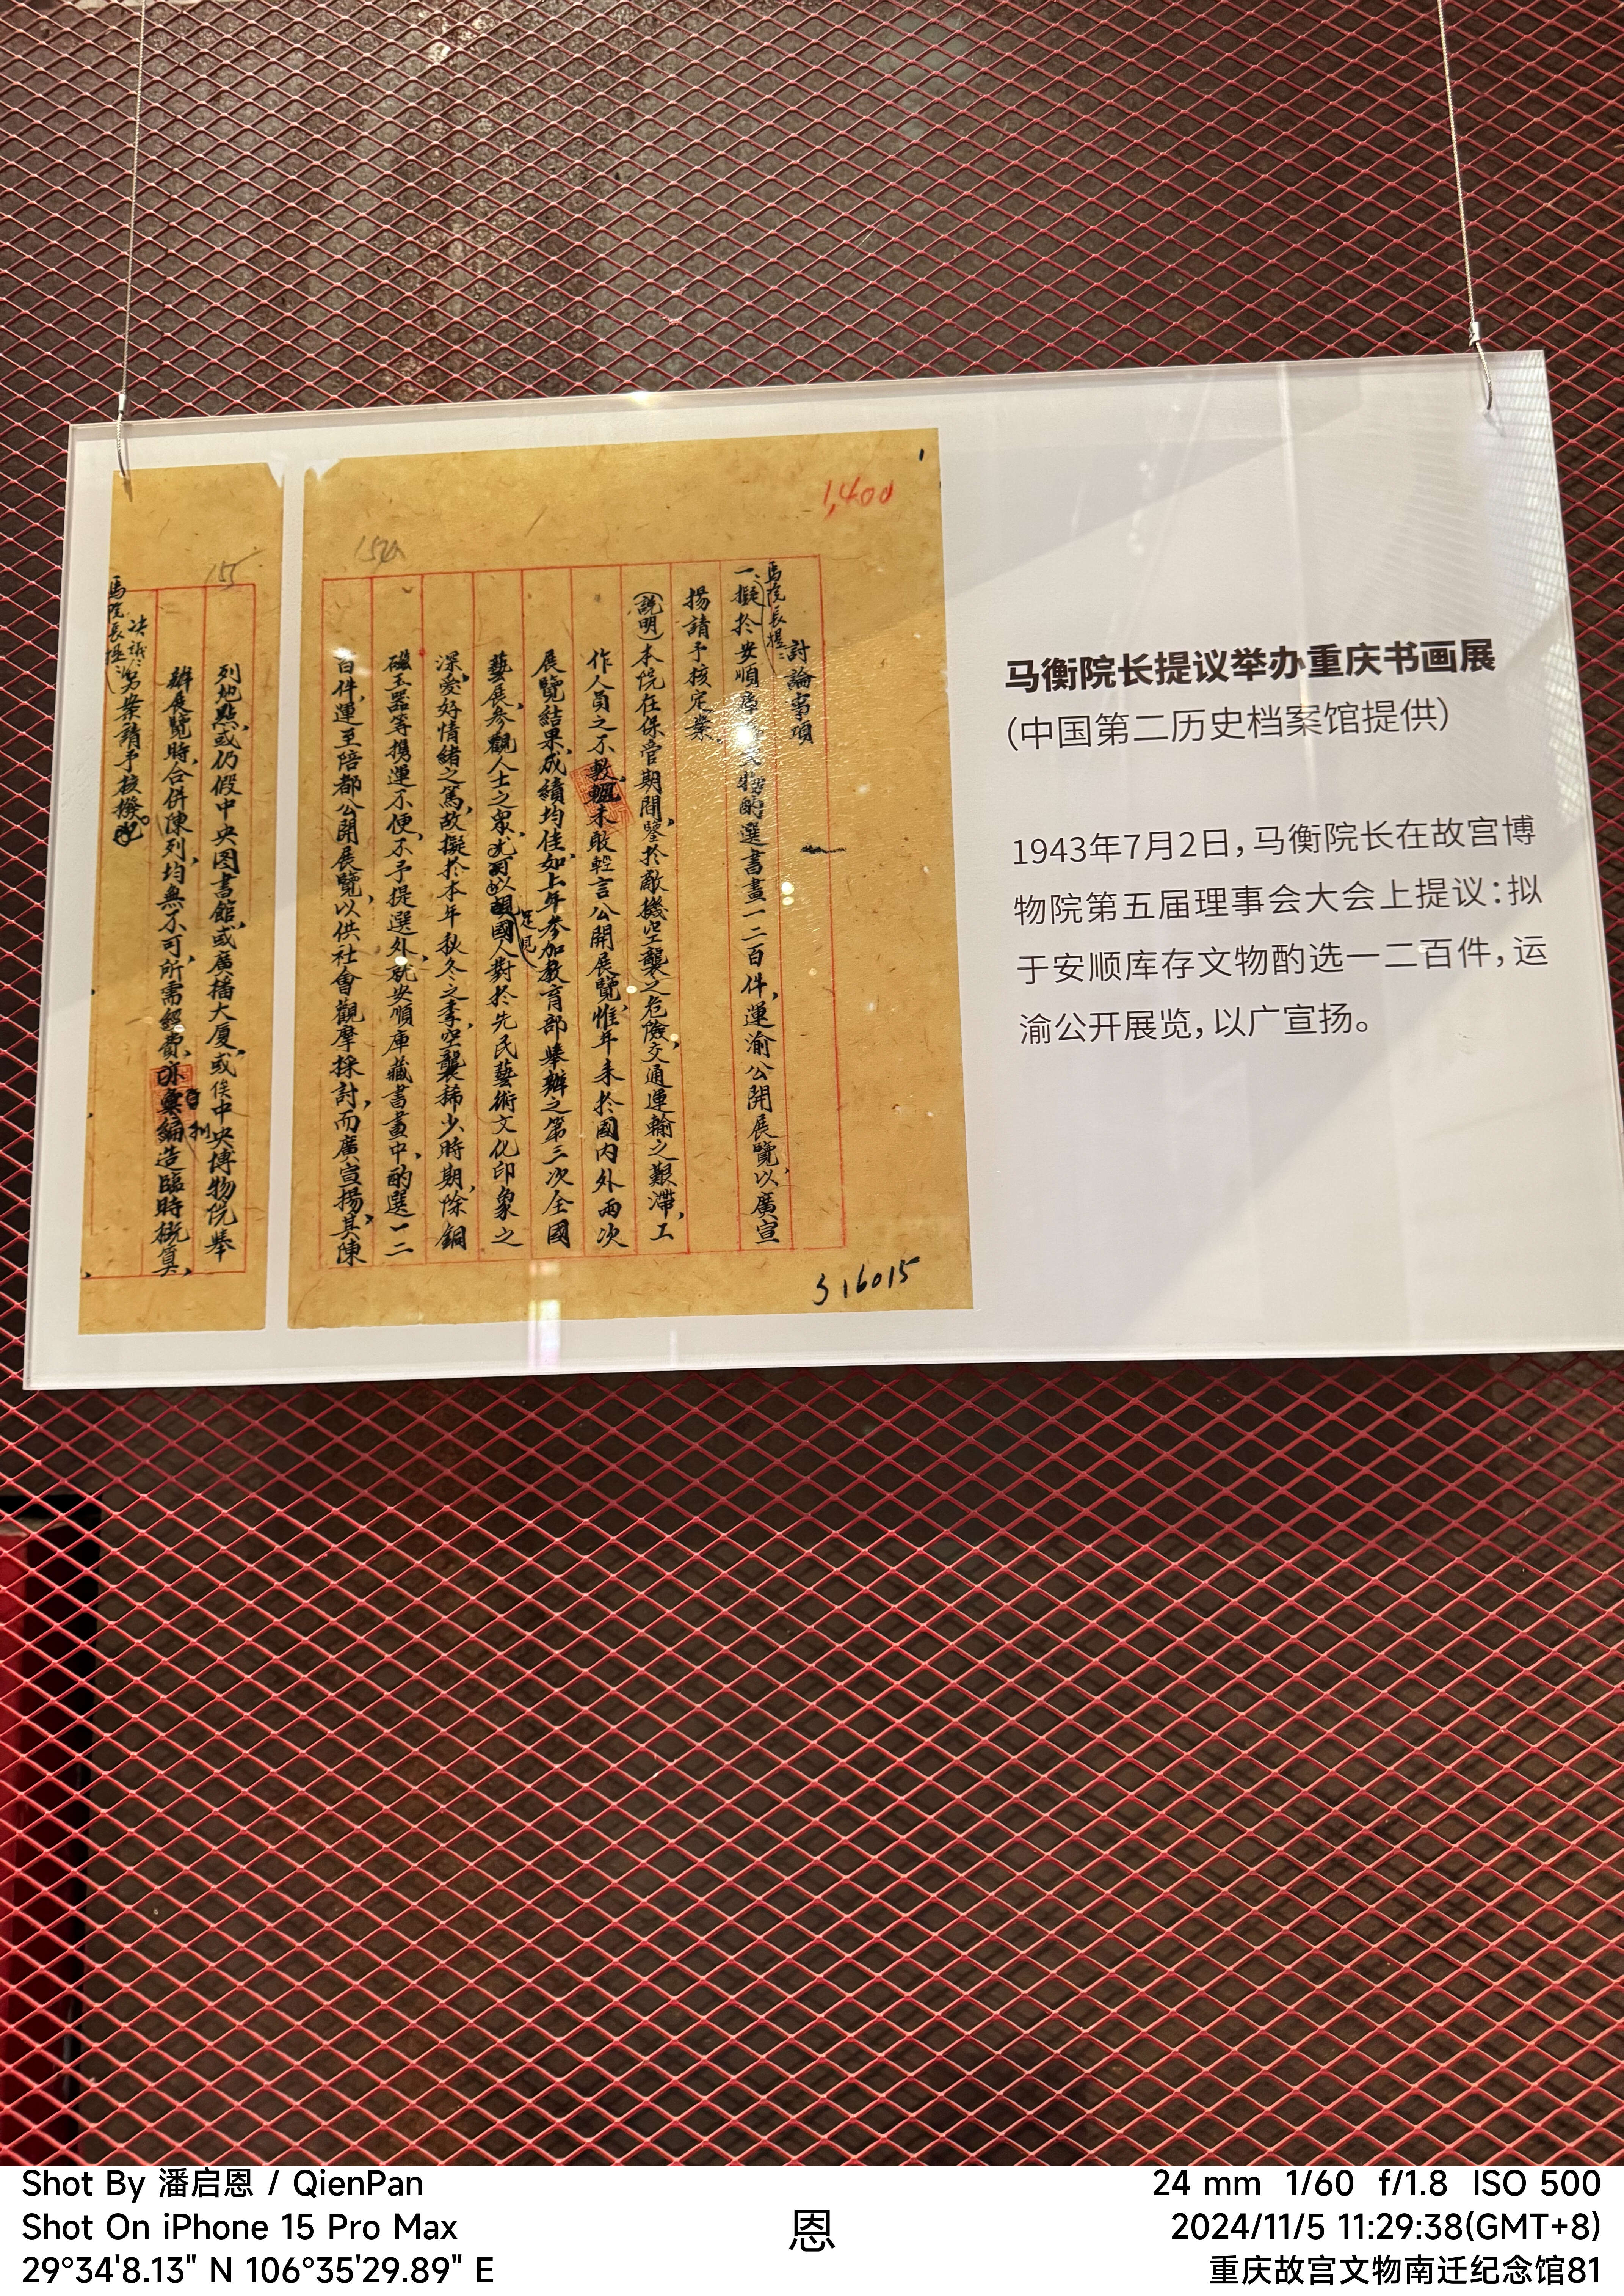 1,400
150
15
討論事項
馬院長提:
一、擬於安順庫 物酌選書畫一二百件,運渝公開展覽,以廣宣
揚請予核定案
(說明)本院在保管期間,鑒於敵機空襲之危險,交通運輸之艱滯,工
作人員之不敷, 未敢輕言公開展覽,惟年來於國內外兩次
展覽結果,成績均佳,如上年參加教育部舉辦之第三次全國
藝展,參觀人士之眾,尤可以 國人對於先民藝術文化印象之
足見
深,愛好情緒之篤,故擬於本年秋冬之季,空襲稀少時期,除銅
磁玉器等攜運不便,不予提選外,就安順庫藏書畫中,酌選一二
百件,運至陪都公開展覽,以供社會觀摩採討,而廣宣揚,其陳
列地點,或仍假中央图書館,或廣播大厦,或俟中央博物院舉
辦展覽時,合併陳列,均無不可,所需經費, 編造臨時概算,
另案請予核撥。
決議:
馬院長提:
S16015
马衡院长提议举办重庆书画展
(中国第二历史档案馆提供)
1943年7月2日,马衡院长在故宫博
物院第五届理事会大会上提议:拟
于安顺库存文物酌选一二百件,运
渝公开展览,以广宣扬。
Shot By 潘启恩 / QienPan
Shot On iPhone 15 Pro Max
29°34'8.13" N 106°35'29.89" E
恩
24 mm 1/60 f/1.8 ISO 500
2024/11/5 11:29:38(GMT+8)
重庆故宫文物南迁纪念馆81